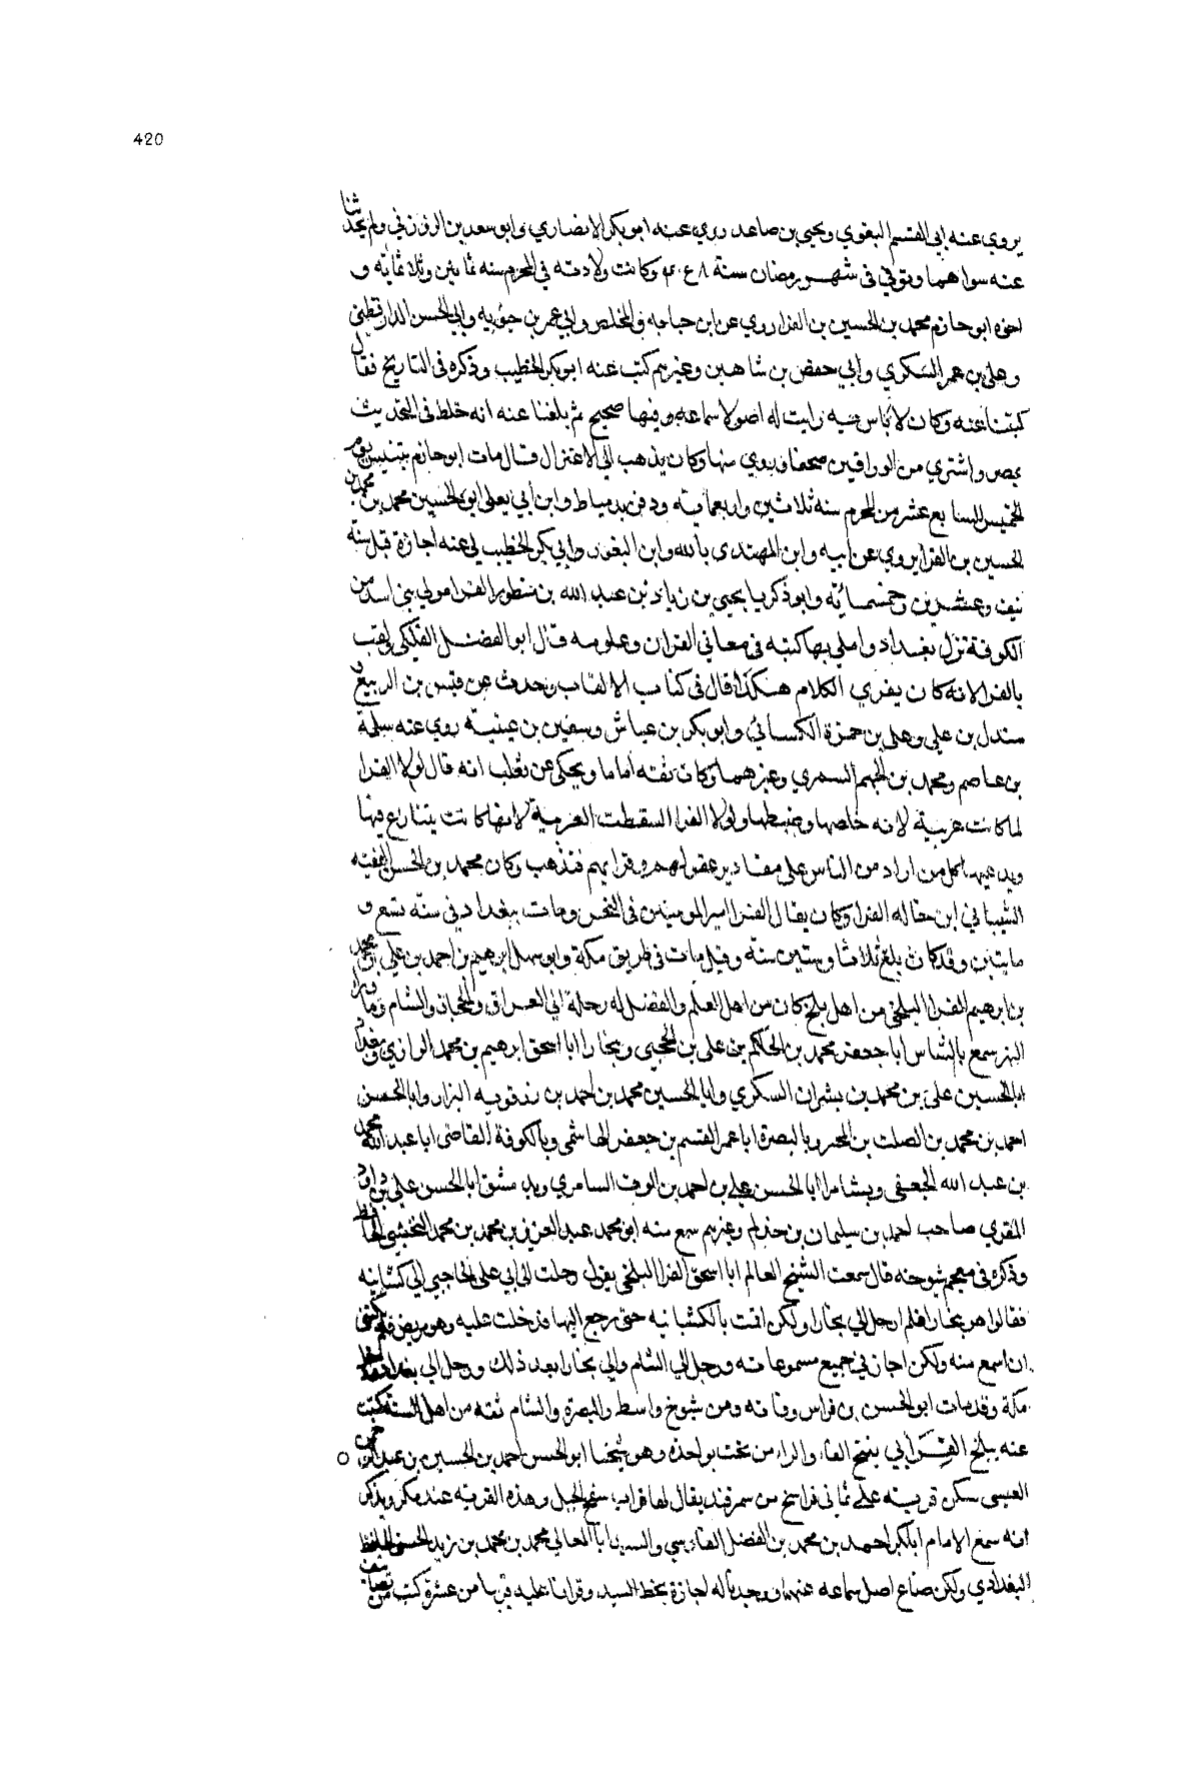 420
يروي عنه ابي القسم البغوي ويحيى بن صاعد روي عنه ابو بكر الانصاري وابو سعد بن الزوزني ولم يحدثنا
عنه سواهما وتوفي في شهر رمضان سنة وكانت ولادته في المحرم سنه ثمانين وثلاثمائه و
اخوه ابو حازم محمد بن الحسين بن الفرا روي عن ابن حبابه والمخلص وابي عمر بن حيويه وابي الحسن الدارقطني
وعلي بن عمر السكري وابي حفص بن شاهين وغيرهم كتب عنه ابو بكر الخطيب وذكره في التاريخ فقال
كتبنا عنه وكان لا باس به رايت له اصولا سماعه فيها صحيح ثم بلغنا عنه انه خلط في التحديث
بمصر واشتري من الوراقين صحفا وروي منها وكان يذهب الى الاعتزال قال مات ابو حازم بتنيس يوم
الخميس السابع عشر من المحرم سنه ثلاثين واربعمايه ودفن بدمياط وابن ابي يعلى ابو الحسين محمد بن محمد بن
الحسين بن الفرا يروي عن ابيه وابن المهتدى بالله وابن النقور وابي بكر الخطيب لي عنه اجازة قبل سنة
نيف وعشرين وخمسمائه وابو زكريا يحيى بن زياد بن عبد الله بن منظور الفرا مولي بني اسد من
الكوفة نزل بغداد واملي بها كتبه في معاني القران وعلومه قال ابو الفضل الفلكي لقب
بالفرا لانه كان يفري الكلام هكذا قال في كتاب الالقاب يحدث عن قيس بن الربيع و
مندل بن علي وعلي بن حمزة الكسائي وابو بكر بن عياش وسفين بن عيينة روي عنه سلمة
بن عاصم ومحمد بن الجهم السمري وغيرهما وكان ثقه اماما ويحكي عن ثعلب انه قال لولا الفرا
لما كانت عربية لانه خلصها وضبطها ولولا الفرا لسقطت العربية لانها كانت يتنازع فيها
ويدعيها كل من اراد من الناس علي مقادير عقولهم وقرايهم فتذهب وكان محمد بن الحسن الفقيه
الشيباني ابن خاله الفرا وكان يقال الفرا امير المومنين في النحو ومات ببغداد في سنه تسع و
مايتين وقد كان بلغ ثلاثا وستين سنة وقيل مات في طريق مكة وابو سهل ابرهيم بن احمد بن علي بن محمد
بن ابرهيم الفرا البلخي من اهل بلخ كان من اهل العلم والفضل له رحلة الي العراق والحجاز والشام وما ورا
النهر سمع بالشاس ابا جعفر محمد بن الحاكم بن علي بن الحجبي وبخارا ابا اسحق ابرهيم بن محمد الرازي وببغداد
ابا الحسين علي بن محمد بن بشران السكري وابا الحسين محمد بن احمد بن رزقويه البزار وابا الحسن
احمد بن محمد بن الصلت بن المجبر وبالبصرة ابا عمر القسم بن جعفر الهاشمي وبالكوفة القاضى ابا عبد الله محمد
بن عبد الله الجعفي وبسامرا ابا الحسن علي بن احمد بن الوف السامري وبدمشق ابا الحسن علي بن داود
المقري صاحب احمد بن سليمان بن حذلم وغيرهم سمع منه ابو محمد عبد العزيز بن محمد بن محمد النخشبي الحافظ
وذكره في معجم شيوخه قال سمعت الشيخ العالم ابا اسحق الفرا البلخي يقول رحلت الى ابي علي الحاجبي الي كشانيه
فقالوا هو ببخارا فلم ارحل الي بخارا ولكن اقمت بالكشانيه حتى رجع اليها فدخلت عليه وهو مريض فلم
ان اسمع منه ولكن اجاز لي جميع مسموعاته ورحل الي الشام والي بخارا بعد ذلك ورحل الي بغداد
مكة وقد مات ابو الحسن بن فراس وفاته ومن شيوخ واسط والبصرة والشام ثقه من اهل السنة كتبت
عنه ببلخ الفرابي بفتح الفاء والراء من تحت بواحدة وهو شيخنا ابو الحسن احمد بن الحسين بن عبد الرحمن
العبسى سكن قريته علي ثماني فراسخ من سمرقند يقال لها فراب سفح الجبل وهذه القريه عند وبذكر
انه سمع الامام ابا بكر احمد بن محمد بن الفضل الفارسي والسيد ابا المعالي محمد بن محمد بن زيد الحسني الحافظ
البغدادي ولكن ضاع اصل سماعه عنهما ووجدنا له اجازة بخط السيد وقرانا عليه قريبا من عشرة كتب من تصانيف